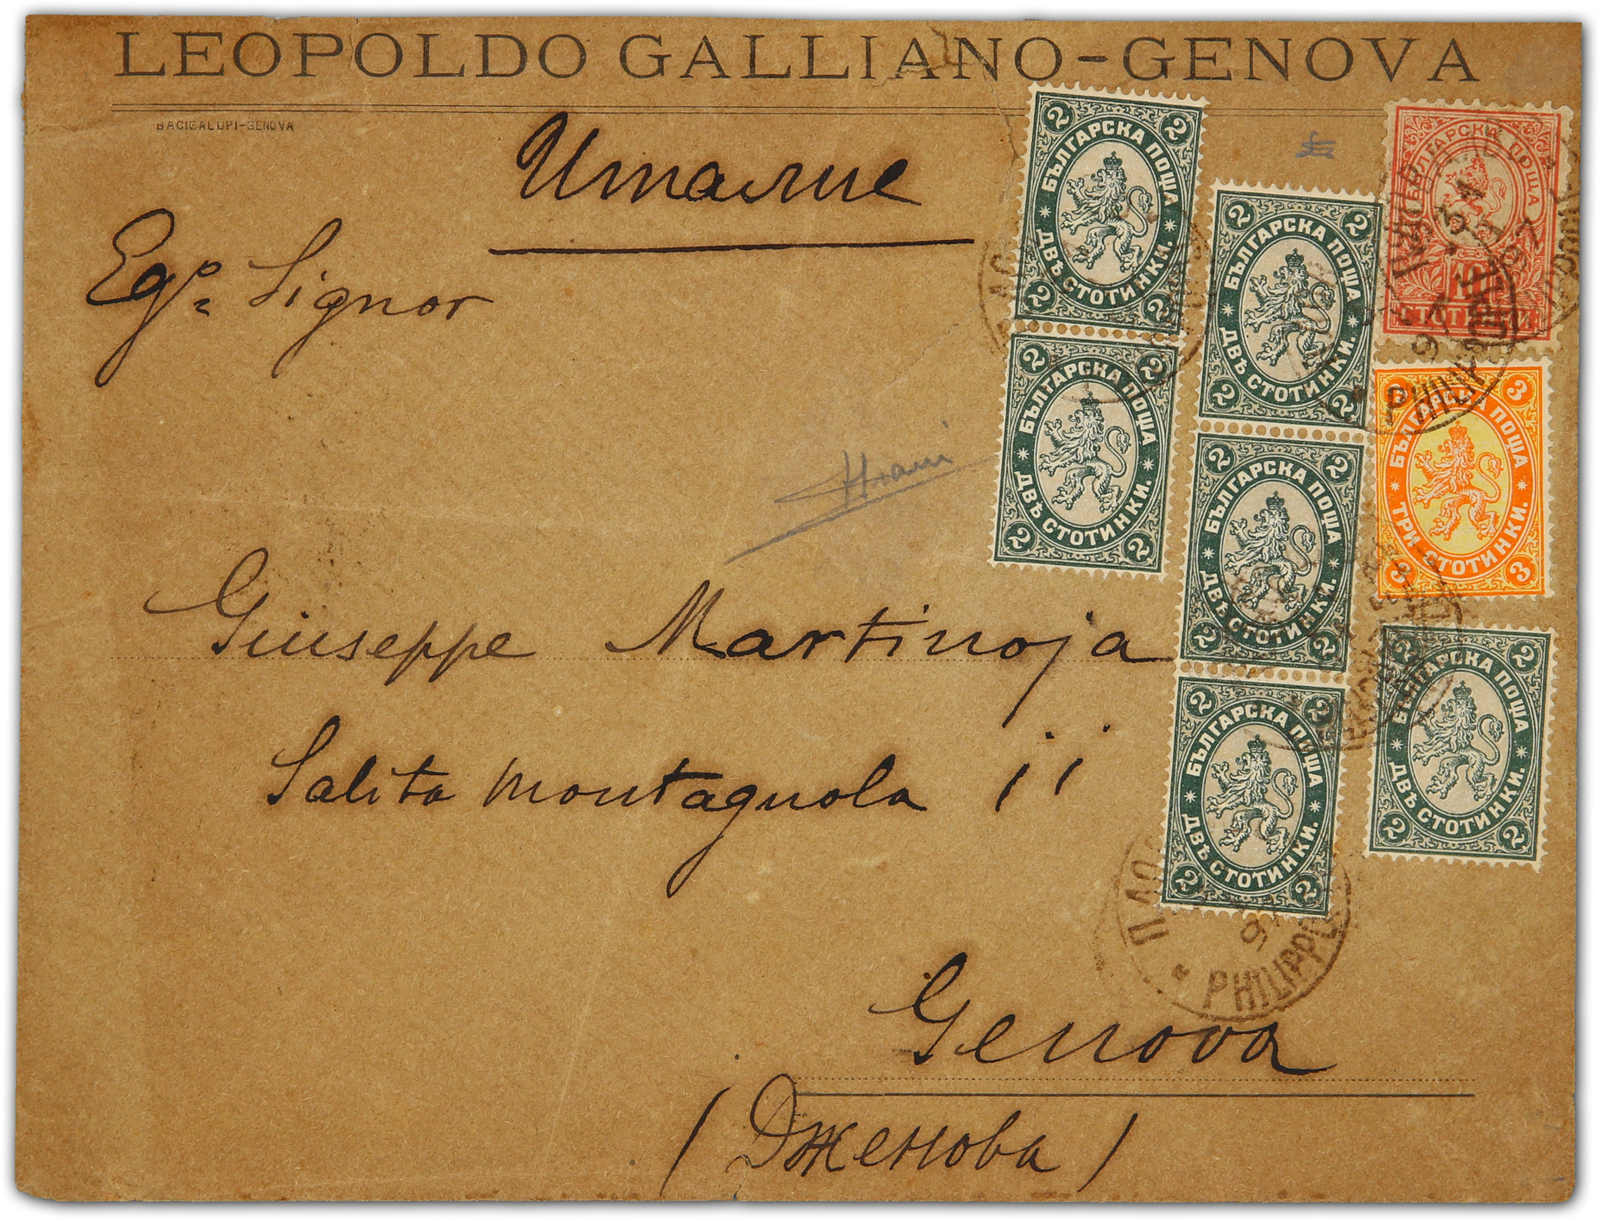 LEOPOLDO GALLIANO-GENOVA
BACIGALUPI-GENOVA
Италие
Egº Signor
Giuseppe Martinoja
Salita Montagnola 11
Genova
(Дженова)
2 2
БЪЛГАРСКА ПОЩА
ДВѢ СТОТИНКИ.
2 2
2 2
БЪЛГАРСКА ПОЩА
ДВѢ СТОТИНКИ.
2 2
2 2
БЪЛГАРСКА ПОЩА
ДВѢ СТОТИНКИ.
2 2
2 2
БЪЛГАРСКА ПОЩА
ДВѢ СТОТИНКИ.
2 2
2 2
БЪЛГАРСКА ПОЩА
ДВѢ СТОТИНКИ.
2 2
БЪЛГАРСКА ПОЩА
10
СТОТИНКИ.
3 3
БЪЛГАРСКА ПОЩА
ТРИ СТОТИНКИ.
3 3
2 2
БЪЛГАРСКА ПОЩА
ДВѢ СТОТИНКИ.
2 2
PHILIPPO